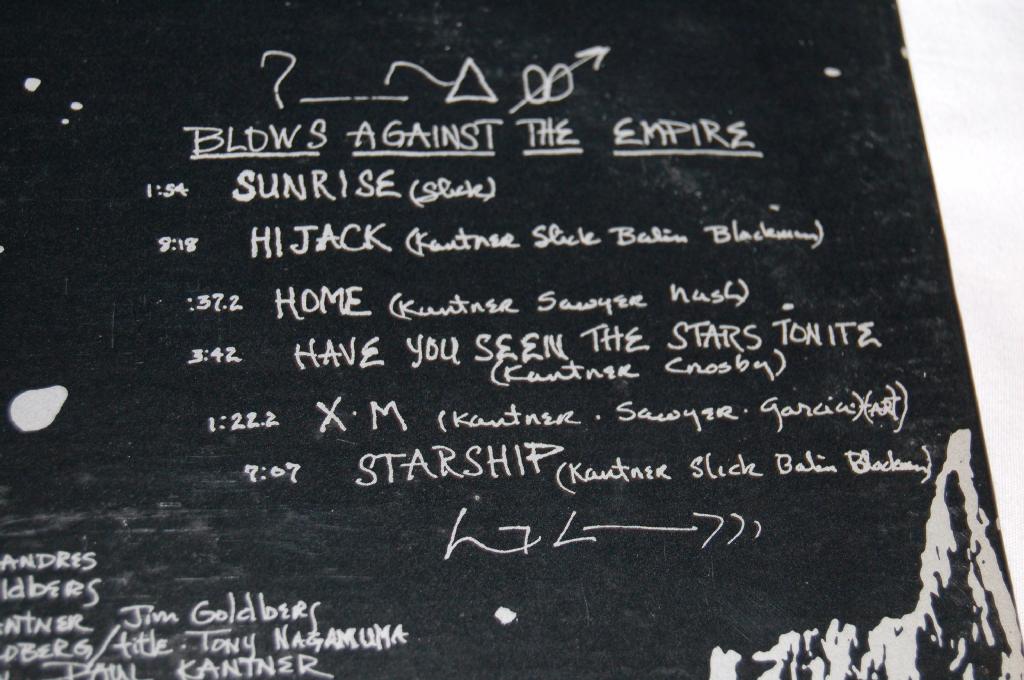 BLOWS AGAINST THE EMPIRE
1:54 SUNRISE (Slick)
8:18 HIJACK (Kantner Slick Balin Blackman)
:37.2 HOME (Kantner Sawyer Nash)
3:42 HAVE YOU SEEN THE STARS TONITE
(Kantner Crosby)
1:22.2 X·M (Kantner · Sawyer · Garcia)(Art)
7:07 STARSHIP (Kantner Slick Balin Blackman)
ANDRES
ldberg
NTNER Jim Goldberg
DBERG/title· TONY NAGAMUMA
PAUL KANTNER